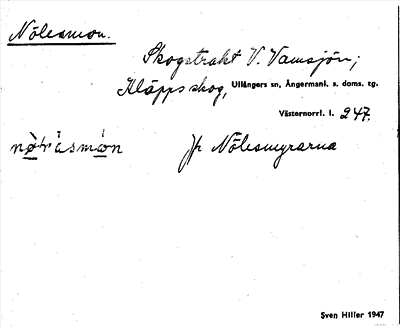 Nölesmon.
Skogstrakt V. Vamsjön;
Kläppsskog, Ullångers sn, Ångermanl. s. doms. tg.
Västernorrl. l. 247.
Jfr Nölesmyrarna
Sven Hiller 1947